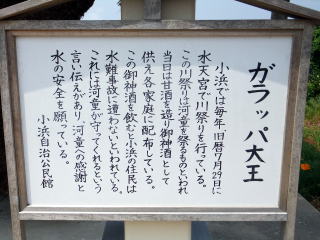 ガラッパ大王
小浜では毎年、旧暦7月29日に
水天宮で川祭りを行っている。
この川祭りは河童を祭るものといわれ
当日は甘酒を造り御神酒として
供え各家庭に配布している。
この御神酒を飲むと小浜の住民は
水難事故に遭わないといわれている。
これには河童が守ってくれるという
言い伝えがあり、河童への感謝と
水の安全を願っている。
小浜自治公民館